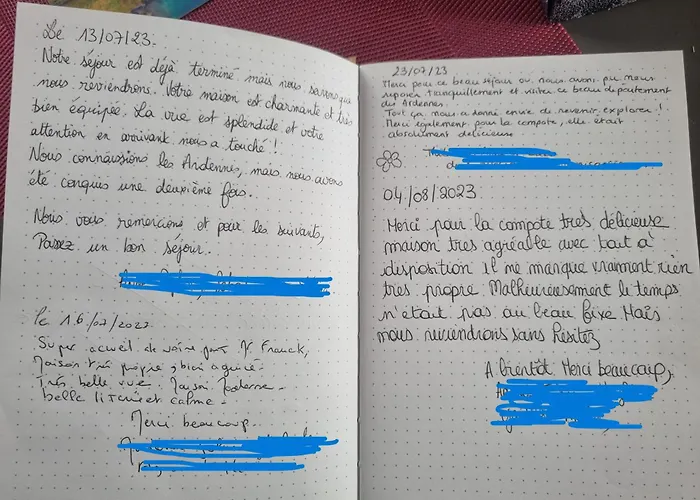 Le 13/07/23.
Notre séjour est déjà terminé mais nous savons que
nous reviendrons. Votre maison est charmante et très
bien équipée. La vue est splendide et votre
attention en arrivant nous a touché !
Nous connaissions les Ardennes, mais nous avons
été conquis une deuxième fois.
Nous vous remercions et pour les suivants,
Passez un bon séjour.
Le 16/07/202
Super accueil de votre part M Franck,
Maison très propre, bien agencé.
Très belle vue. Maison Moderne.
belle literie et calme.
Merci beaucoup.
23/07/23
Merci pour ce beau séjour où nous avons pu nous
reposer tranquillement et visiter ce beau département
des Ardennes.
Tout ça nous a donné envie de revenir explorer !
Merci également pour la compote, elle était
absolument délicieuse
04/08/2023
Merci pour la compote tres délicieuse
maison tres agréable avec tout a'
disposition il ne manque vraiment rien
tres propre Malheureusement le temps
n'était pas au beau fixe Mais
nous reviendrons sans hésitez
A bientôt Merci beaucoup,